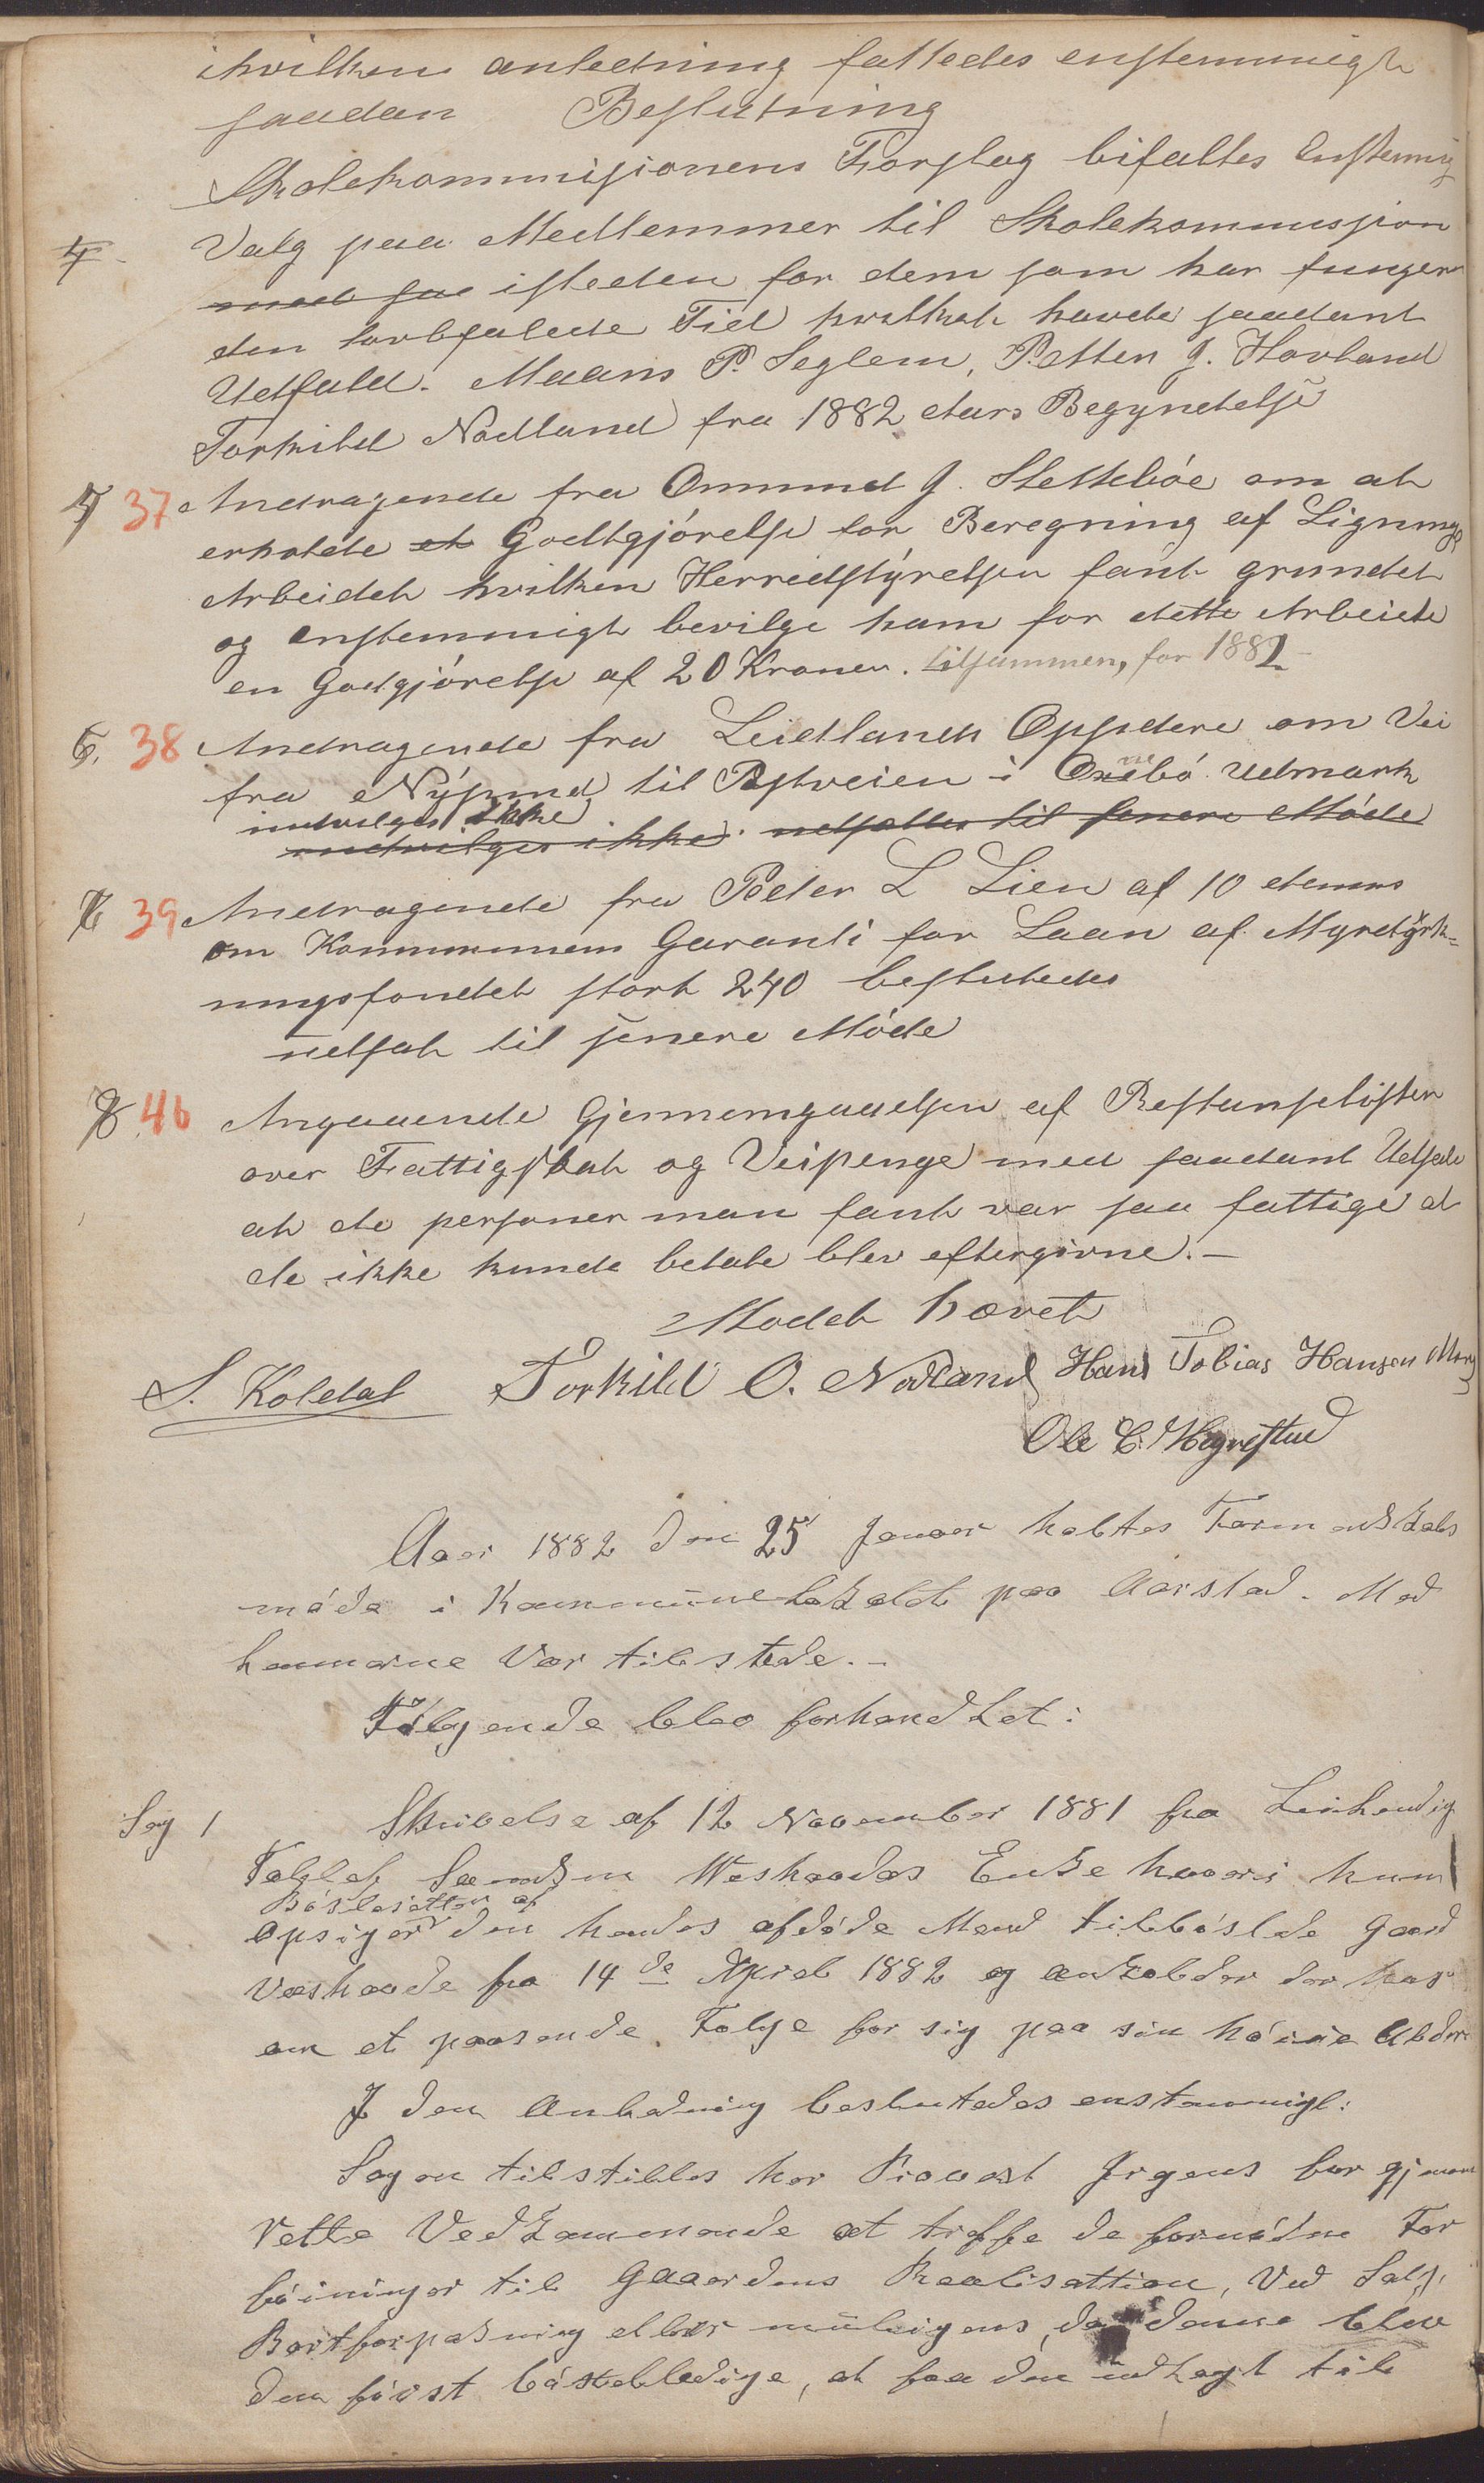 ihvilken anledning fattedes enstemmigt
saadan Beslutning
Skolekommisionens Forslag bifaltes Enstemig
4. Valg paa Medlemmer til Skolekommission
med istedeu for dem som har funger
den lovbefalede Tid hvilket havde saadant
Udfald. Maans P. Seglem, Petter J. Hovland
Torkild Nodland fra 1882 Aars Begyndelse
5 37 Andragende fra Ommund J. Slettebøe om at
erholde et Godtgjørelse for Beregning af Lignings
Arbeidet hvilken Herredstyrelsen fant grundet
og enstemmigt bevilge ham for dette Arbeide
en Godgjørelse af 20 Kroner. tilsammen, for 1882
6. 38 Andragende fra Leidlands Oppsidere om Vei
fra Nysund til Postveien i Øvrebø Udmark
indvilges ikke
indvilges ikke udsættes til senere Møde
7 39 Andragende fra Peder L Lien af 10 dennes
om Kommunens Garanti for Laan af Myrdyrk-
ningsfondet stort 240 besluttedes
udsat til senere Møde
8 40 Angaaende Gjennemgaaelsen af Restanselisten
over Fattigskat og Veipenge med saadant Udfald
at de personer man fant var saa fattige at
de ikke kunde betale blev eftergivne. –
Modet hævet
S. Koldal Torkild O. Nodland Hans Tobias Hansen
Ole C. Hegrestad
Aaar 1882 den 25 Januar holtes Formandskabs
møde i Kommunelokalet paa Aarstad. Med
lemmerne Var tilstede. –
Følgende blev forhandlet:
Sag 1 Skrivelse af 12 November 1881 fra
Enke hvori hun
Bøslesetten af
opsiger den hendes afdøde Mand tilbøslede Gaard
Veshovde fra 14de April 1882 og anholder derhos
om et passende Følge for sig paa sin høie Alder
I den Anledning besluttedes enstemmigt:
Sagen tilstilles hr Provst Jrgens for gjennem
rette Vedkommende at træffe de fornødne For
føininger til Gaardens Realisattion, Ved Salg,
Bortforpakning eller muligens, da denne blev
den først bøsleledige, at faa den udlagt til